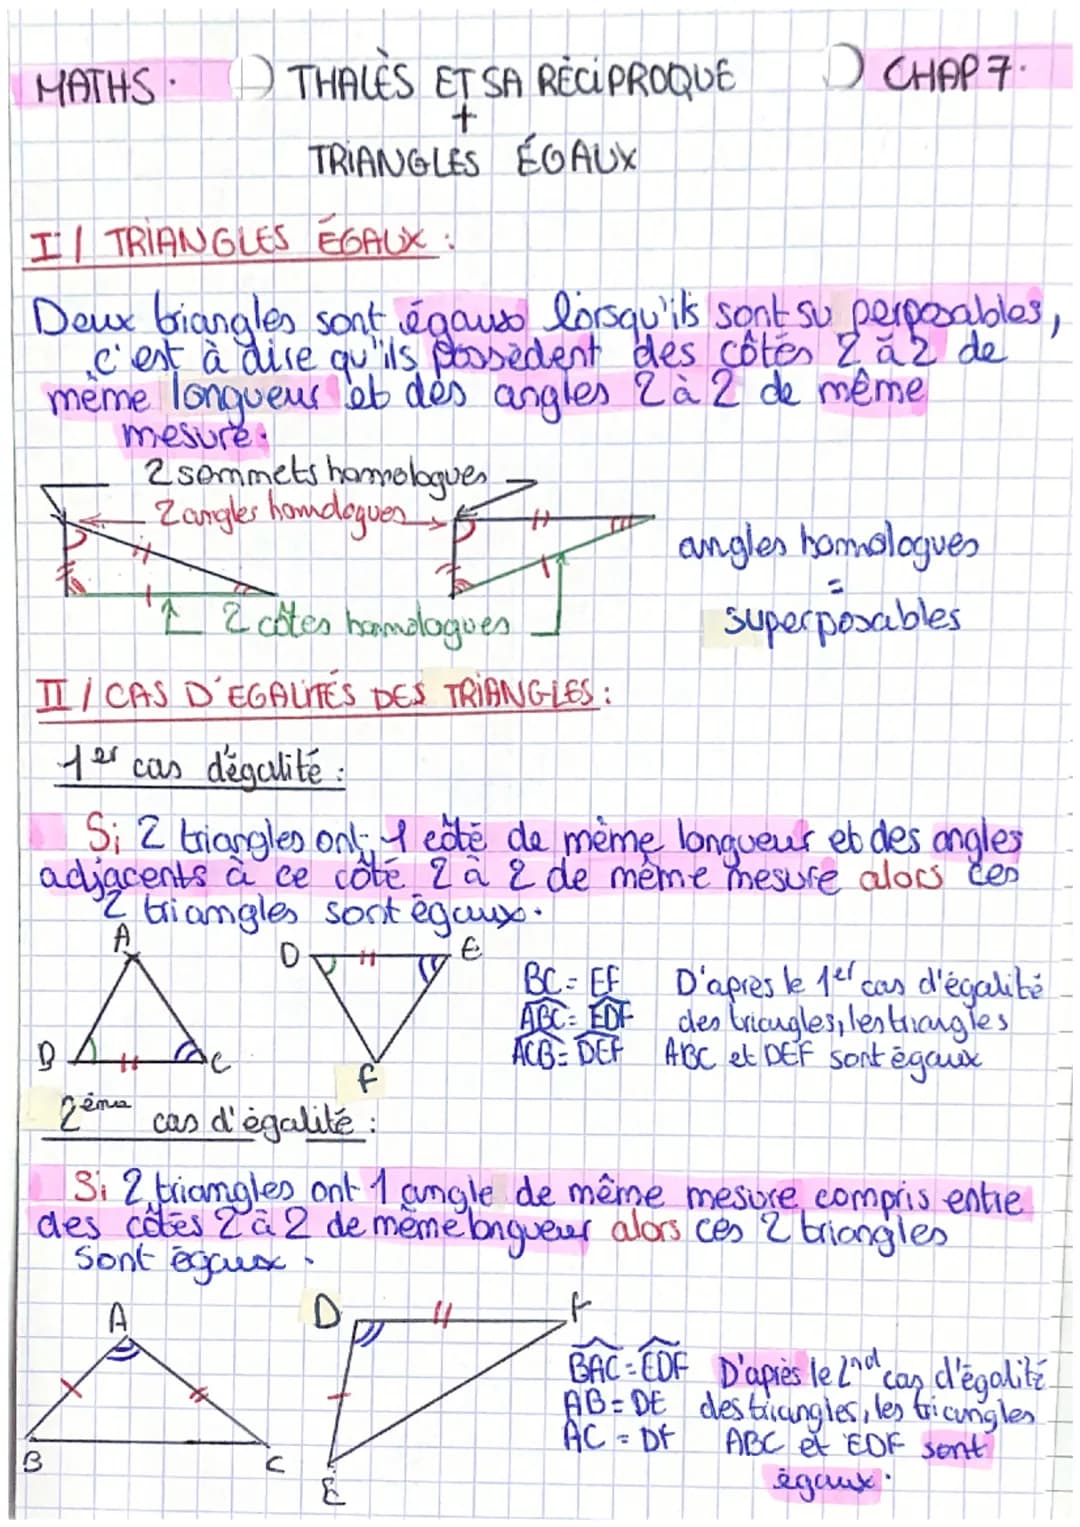 MATHS. THALÈS ET SA RÉCIPROQUE CHAP 7.
+
TRIANGLES ÉGAUX
I / TRIANGLES ÉGAUX :
Deux triangles sont égaux lorsqu'ils sont superposables,
c'est à dire qu'ils possèdent des côtés 2 à 2 de
même longueur et des angles 2 à 2 de même
mesure.
2 sommets homologues
2 angles homologues
angles homologues
=
superposables
2 côtés homologues
II / CAS D'EGALITÉS DES TRIANGLES :
1er cas d'égalité :
Si 2 triangles ont 1 côté de même longueur et des angles
adjacents à ce côté 2 à 2 de même mesure alors ces
2 triangles sont égaux.
A
D E
B C
F
BC = EF D'après le 1er cas d'égalité
ABC = EDF des triangles, les triangles
ACB = DEF ABC et DEF sont égaux
2ème cas d'égalité :
Si 2 triangles ont 1 angle de même mesure compris entre
des côtés 2 à 2 de même longueur alors ces 2 triangles
sont égaux.
A
D F
B C
E
BAC = EDF D'après le 2nd cas d'égalité
AB = DE des triangles, les triangles
AC = DF ABC et EDF sont
égaux.